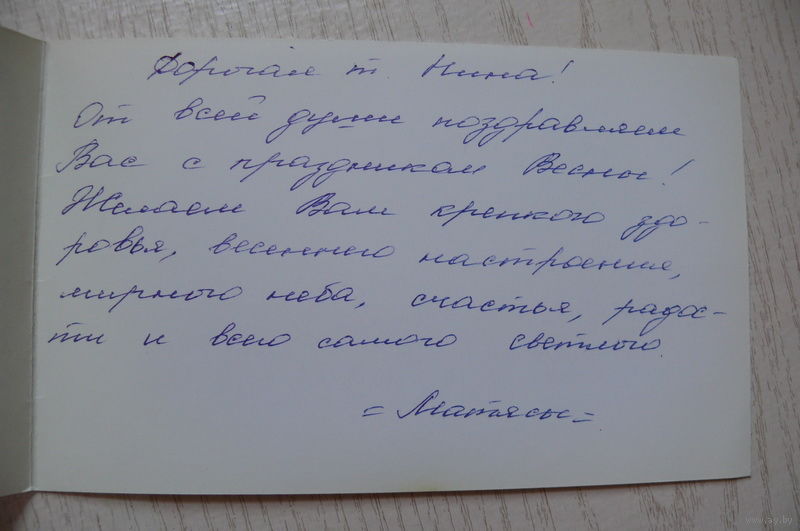 Дорогая т. Нина!
От всей души поздравляем
Вас с праздником Весны!
Желаем Вам крепкого здо-
ровья, весеннего настроения,
мирного неба, счастья, радос-
ти и всего самого светлого
= Матясы =
www.ay.by